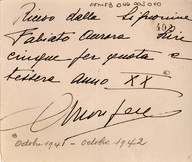 AFMFB 044 993 010
Ricevo dalla Signorina
Fabiato Aurora Lire
cinque per quota e
tessera anno XX°
Octobre 1941 - octobre 1942